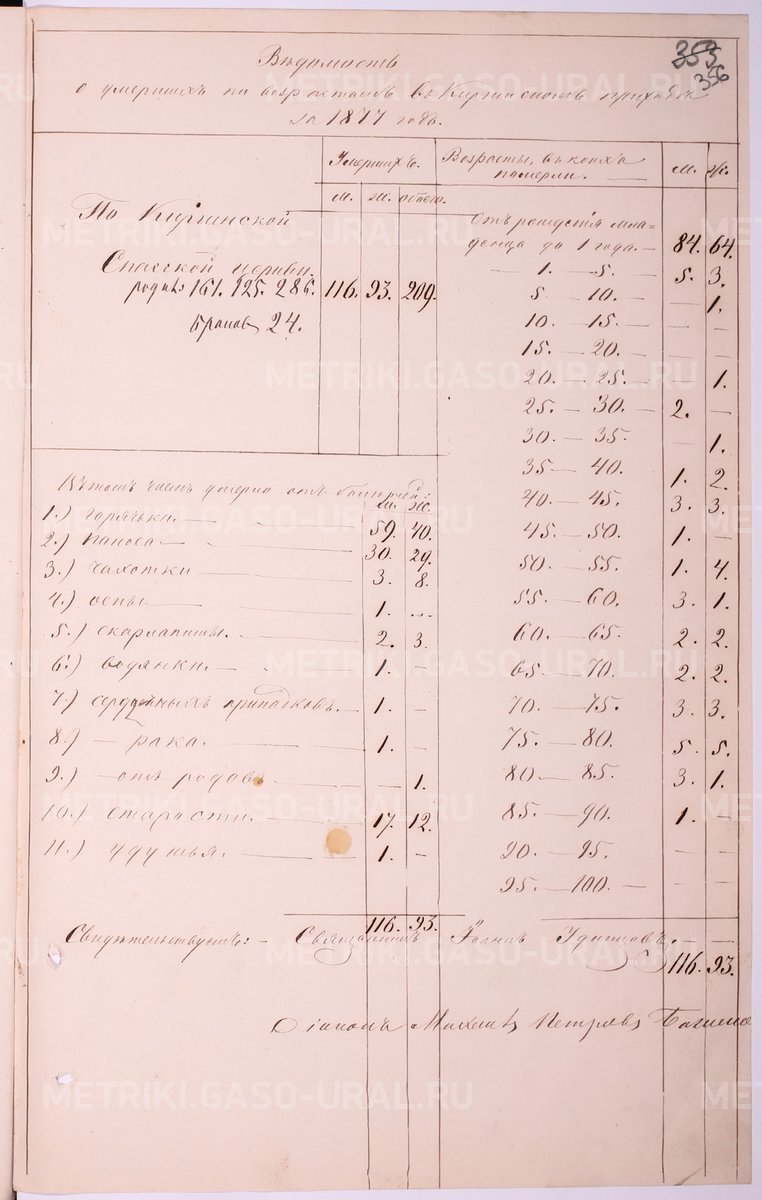 353
356
Вѣдомость
о умершихъ по возрастамъ въ Киргинскомъ приходѣ
за 1877 годъ.
Умершихъ.
м. ж. обоего.
По Киргинской
Спасской церкви. 116. 93. 209.
родил 161. 125. 286.
браков 24.
Возрасты, въ коихъ померли. м. ж.
Отъ рожденія мла=
денца до 1 года. 84. 64.
1. — 5. — 5. 3.
5 — 10. — 1.
10 — 15. — — —
15. — 20. — —
20. — 25. — — 1.
25. — 30. — 2. —
30. — 35. — 1.
35 — 40. 1. 2.
40. — 45. 3. 3.
45. — 50. 1. —
50. — 55. 1. 4.
55. — 60. 3. 1.
60. — 65. 2. 2.
65 — 70. 2. 2.
70. — 75. 3. 3.
75. — 80. 5. 5.
80 — 85. 3. 1.
85. — 90. 1. —
90. — 95. — —
95. — 100. — — —
116. 93.
Въ томъ числѣ умерло отъ болѣзней:
м. ж.
1.) горячки 59. 40.
2.) поноса 30. 29.
3.) чахотки 3. 8.
4.) оспы 1. ...
5.) скарлатины. 2. 3.
6.) водянки. 1. —
7.) сердечныхъ припадковъ. 1. —
8.) — рака. 1. —
9.) — отъ родовъ. — 1.
10.) старости. 17. 12.
11.) удушья. 1. —
116. 93.
Свидѣтельствуемъ: — Священникъ Іоаннъ Удинцовъ.
Діаконъ Михаилъ Петровъ
METRIKI.GASO-URAL.RU